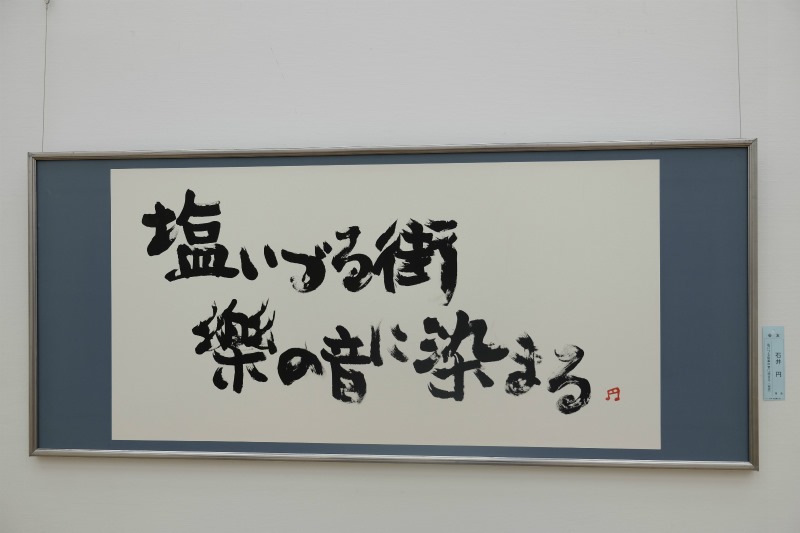 塩いづる街
楽の音に染まる
円
石井 円